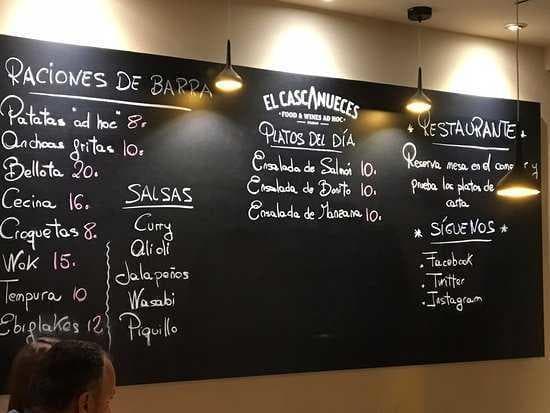 RACIONES DE BARRA
Patatas "ad hoc" 8.
Anchoas gritas 10.
Bellota 20.
Cecina 16.
Croquetas 8.
Wok 15.
Tempura 10
Ebiflakes 12
SALSAS
Curry
Alioli
Jalapeños
Wasabi
Piquillo
EL CASCANUECES
• FOOD & WINES AD HOC •
PLATOS DEL DÍA
Ensalada de Salmón 10.
Ensalada de Bonito 10.
Ensalada de Manzana 10.
* RESTAURANTE *
Reserva mesa en el y
prueba los platos de
carta
* SÍGUENOS *
. Facebook
. Twitter
. Instagram